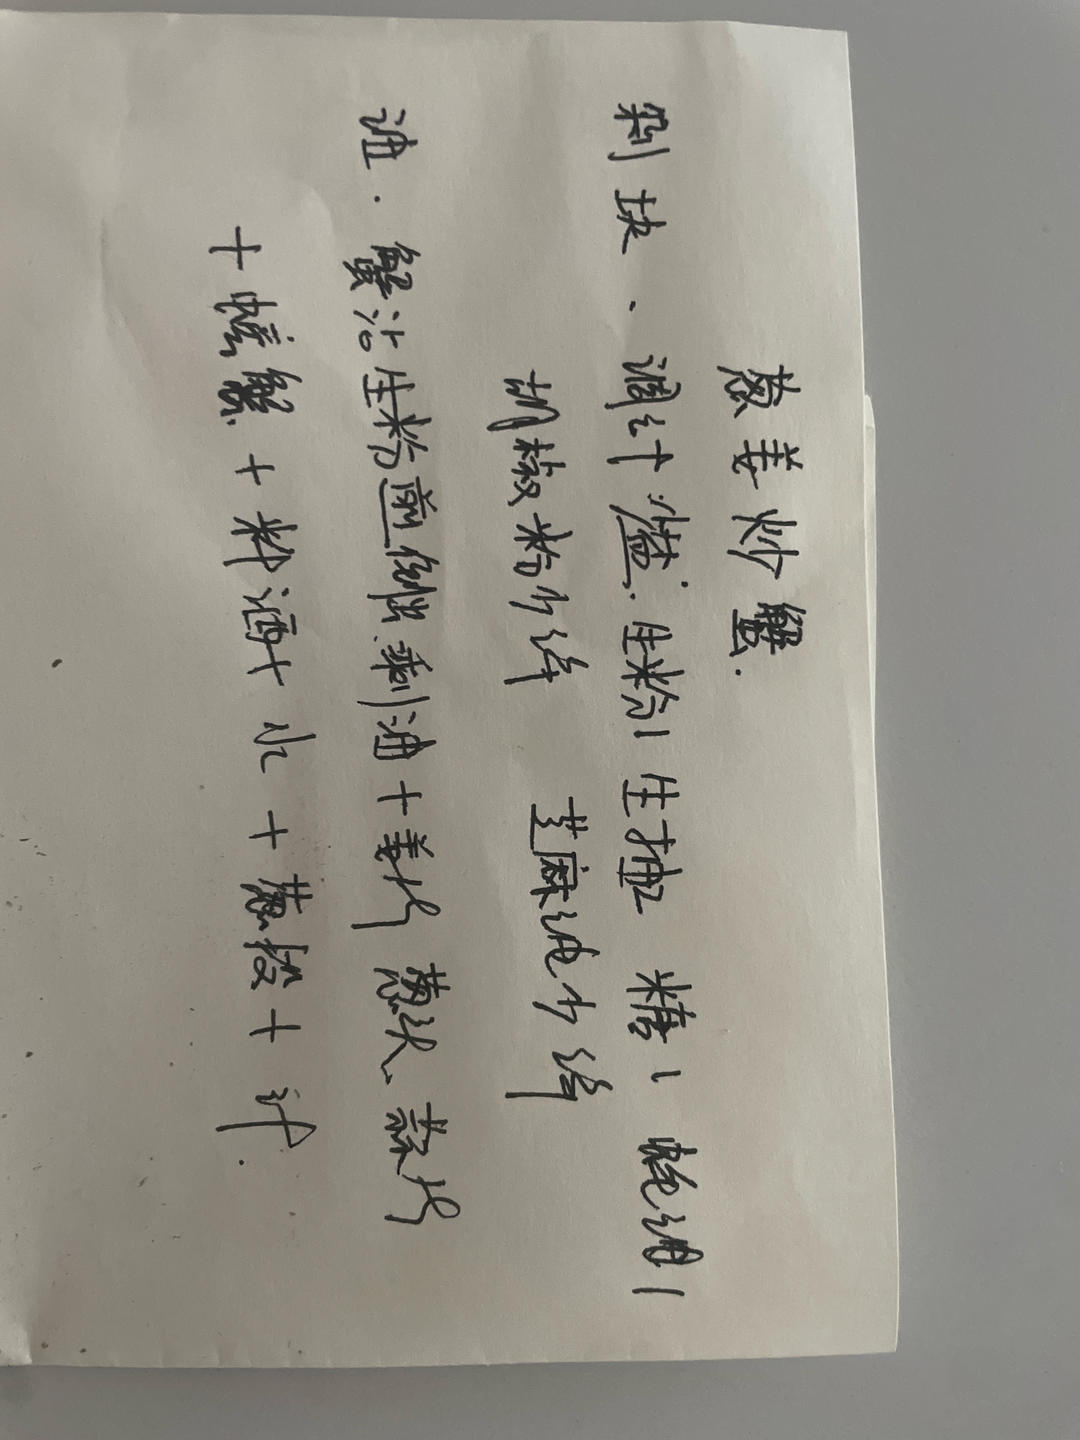 葱姜炒蟹.
剁块、调汁 盐. 生粉1 生抽2 糖1 蚝油1
胡椒粉少许 芝麻油少许
油. 蟹沾生粉煎 剩油+姜片 葱头、蒜片
+螃蟹+料酒+水+葱段+汁.